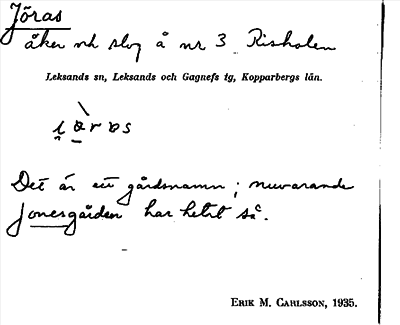 Jöras
åker och slog å nr 3 Risholen
Leksands sn, Leksands och Gagnefs tg, Kopparbergs län.
Det är ett gårdsnamn; nuvarande
Jonesgården har hetat så.
ERIK M. CARLSSON, 1935.